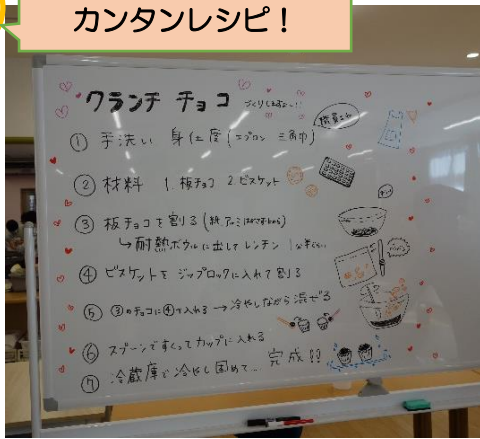 カンタンレシピ！
クランチ チョコ づくりしましょう!!
① 手洗い 身仕度 (エプロン 三角巾)
② 材料 1. 板チョコ 2. ビスケット
③ 板チョコを割る (紙、アルミは
→ 耐熱ボウルに出して レンチン 1分半くらい
④ ビスケットを ジップロックに入れて 割る
⑤ ③のチョコに④を入れる → 冷やしながら 混ぜる
⑥ スプーンですくって カップに入れる
⑦ 冷蔵庫で 冷やし 固めて… 完成!!